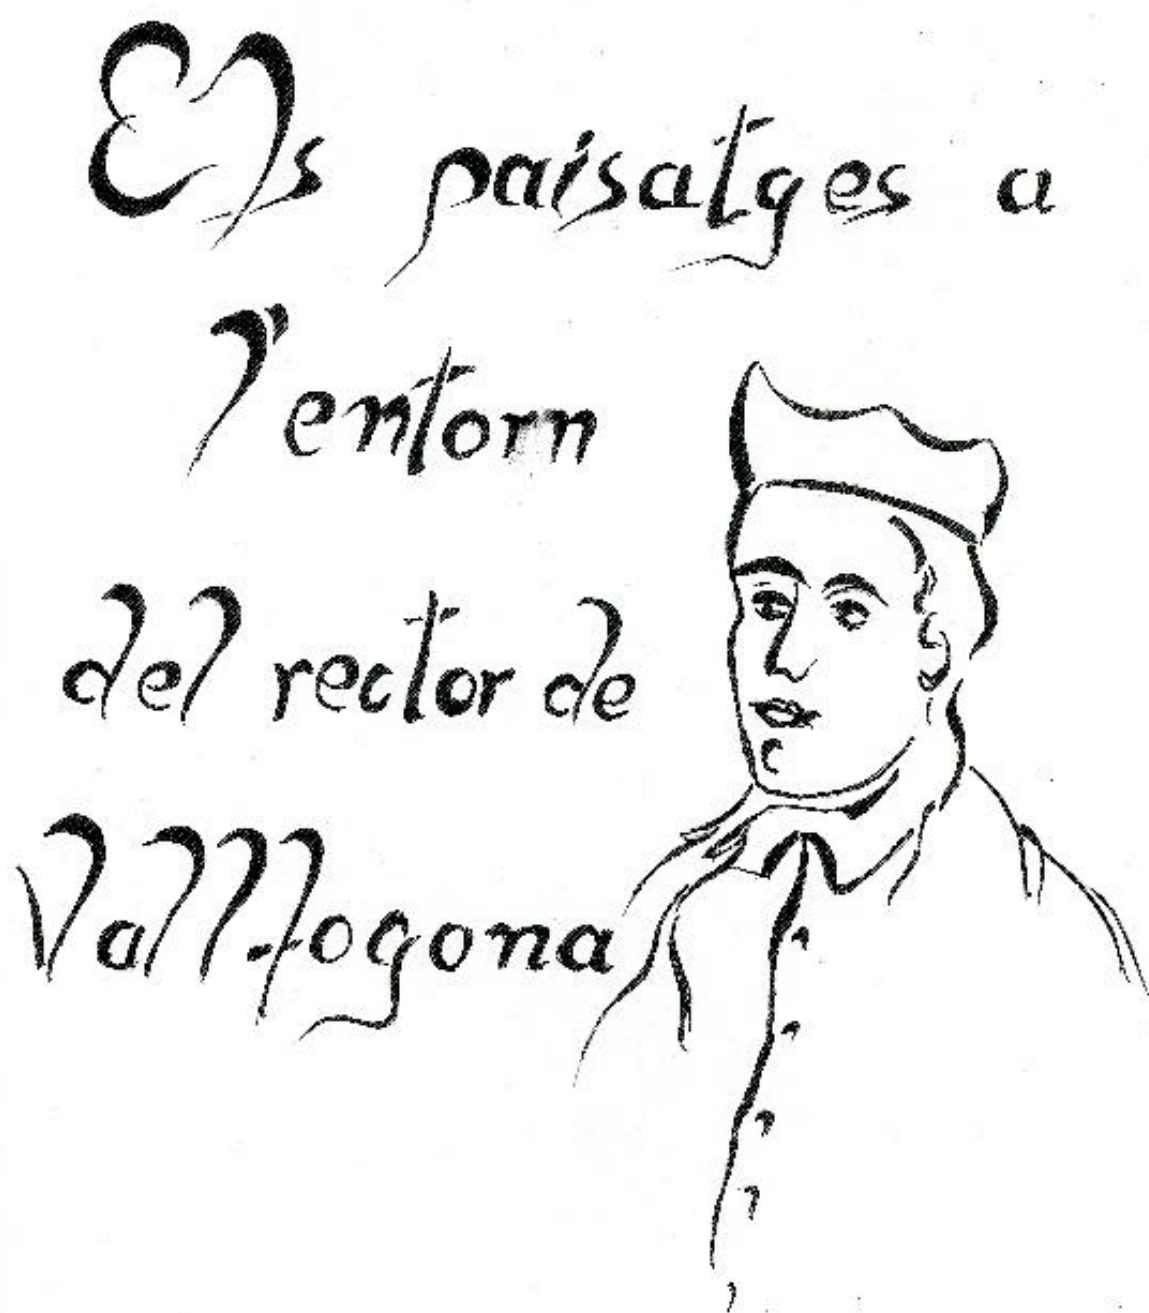 Els paisatges a
l'entorn
del rector de
Vall-fogona